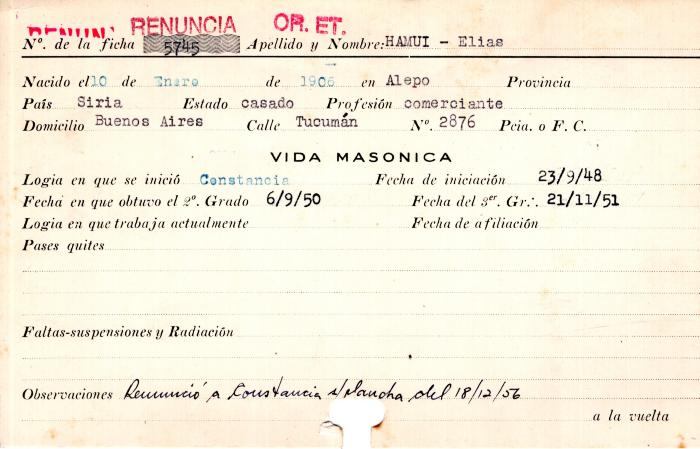 RENUNCIA RENUNCIA OR. ET.
Nº. de la ficha 5745 Apellido y Nombre: HAMUI - Elias
Nacido el 10 de Enero de 1906 en Alepo Provincia
País Siria Estado casado Profesión comerciante
Domicilio Buenos Aires Calle Tucumán Nº. 2876 Pcia. o F. C.
VIDA MASONICA
Logia en que se inició Constancia Fecha de iniciación 23/9/48
Fecha en que obtuvo el 2º. Grado 6/9/50 Fecha del 3er. Gr∴ 21/11/51
Logia en que trabaja actualmente Fecha de afiliación
Pases quites
Faltas-suspensiones y Radiación
Observaciones Renunció a Constancia s/plancha del 18/12/56
a la vuelta